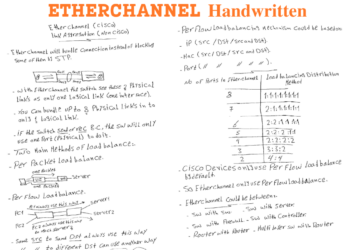 ETHERCHANNEL Handwritten
EtherChannel (Cisco)
Link Aggregation (Non Cisco)
- EtherChannel will bundle Connection instead of blocking
some of them by STP.
- with EtherChannel the switch see those Physical
links as one Logical link
- You can bundle up to 8 Physical links in to
only 1 Logical link.
- if the switch
use one Port (Physical) to
- Two main Methods of Load balance.
- Per Packet Load balance.
- Per Flow Load balance.
PC1
Server1
PC2
Server2
- Same Src to Same Dst always use this way
to different Dst can use another way
- Per Flow Load balancing mechanism could be based on
- IP (Src / DST / Src and DST)
- MAC (Src / DST / Src and DST)
- Port
No. of Ports to EtherChannel
Load balancing Distribution
Method
8 1:1:1:1:1:1:1:1
7 2:1:1:1:1:1:1
6 2:2:1:1:1:1
5 2:2:2:1:1
4 2:2:2:2
3 3:3:2
2 4:4
- Cisco Devices only use Per Flow Load balance
- So EtherChannel only use Per Flow Load balance.
EtherChannel Could be between
- SW with SW
SW with Server
- SW with Firewall
- SW with Controller
- Router with Router